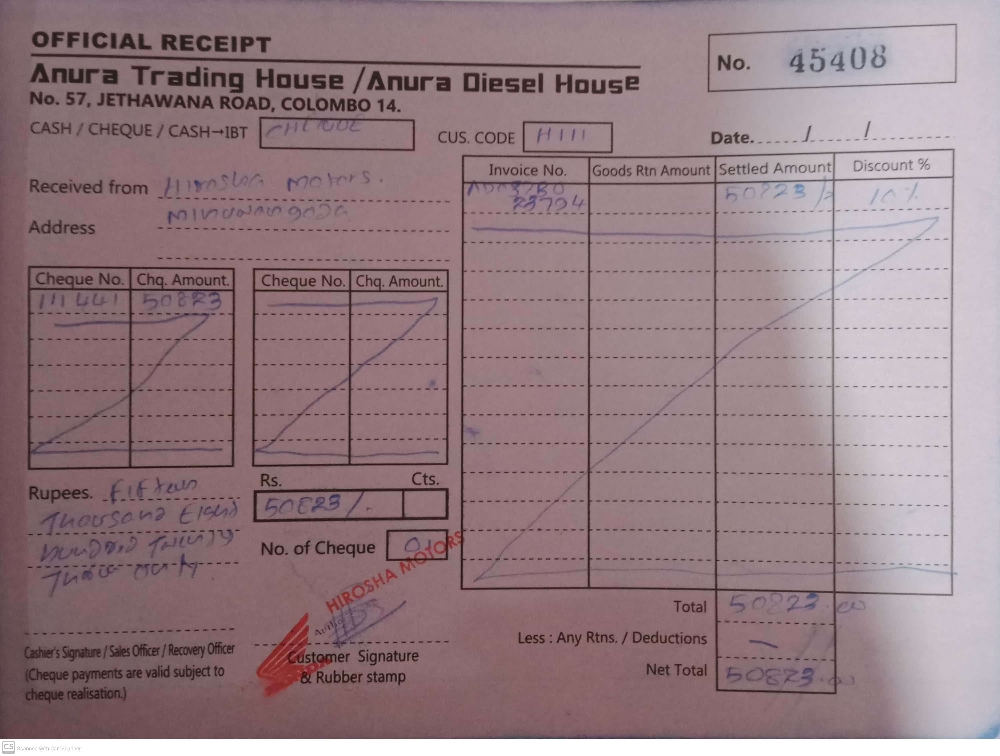 OFFICIAL RECEIPT
No. 45408
Anura Trading House /Anura Diesel House
No. 57, JETHAWANA ROAD, COLOMBO 14.
CASH / CHEQUE / CASH→IBT CHEQUE
CUS. CODE H111
Date....../....../......
Received from Hirosha Motors.
Address Minuwangoda
Invoice No. Goods Rtn Amount Settled Amount Discount %
23794 50823/= 10%
Cheque No. Chq. Amount. Cheque No. Chq. Amount.
111441 50823
Rupees. Fifteen
Thousand Eight
hundred Twenty
Three only
Rs. Cts.
50823/.
No. of Cheque 01
HIROSHA MOTORS
Total 50823.00
Less : Any Rtns. / Deductions —
Net Total 50823.00
Cashier's Signature / Sales Officer / Recovery Officer
(Cheque payments are valid subject to
cheque realisation.)
Customer Signature
& Rubber stamp
CS